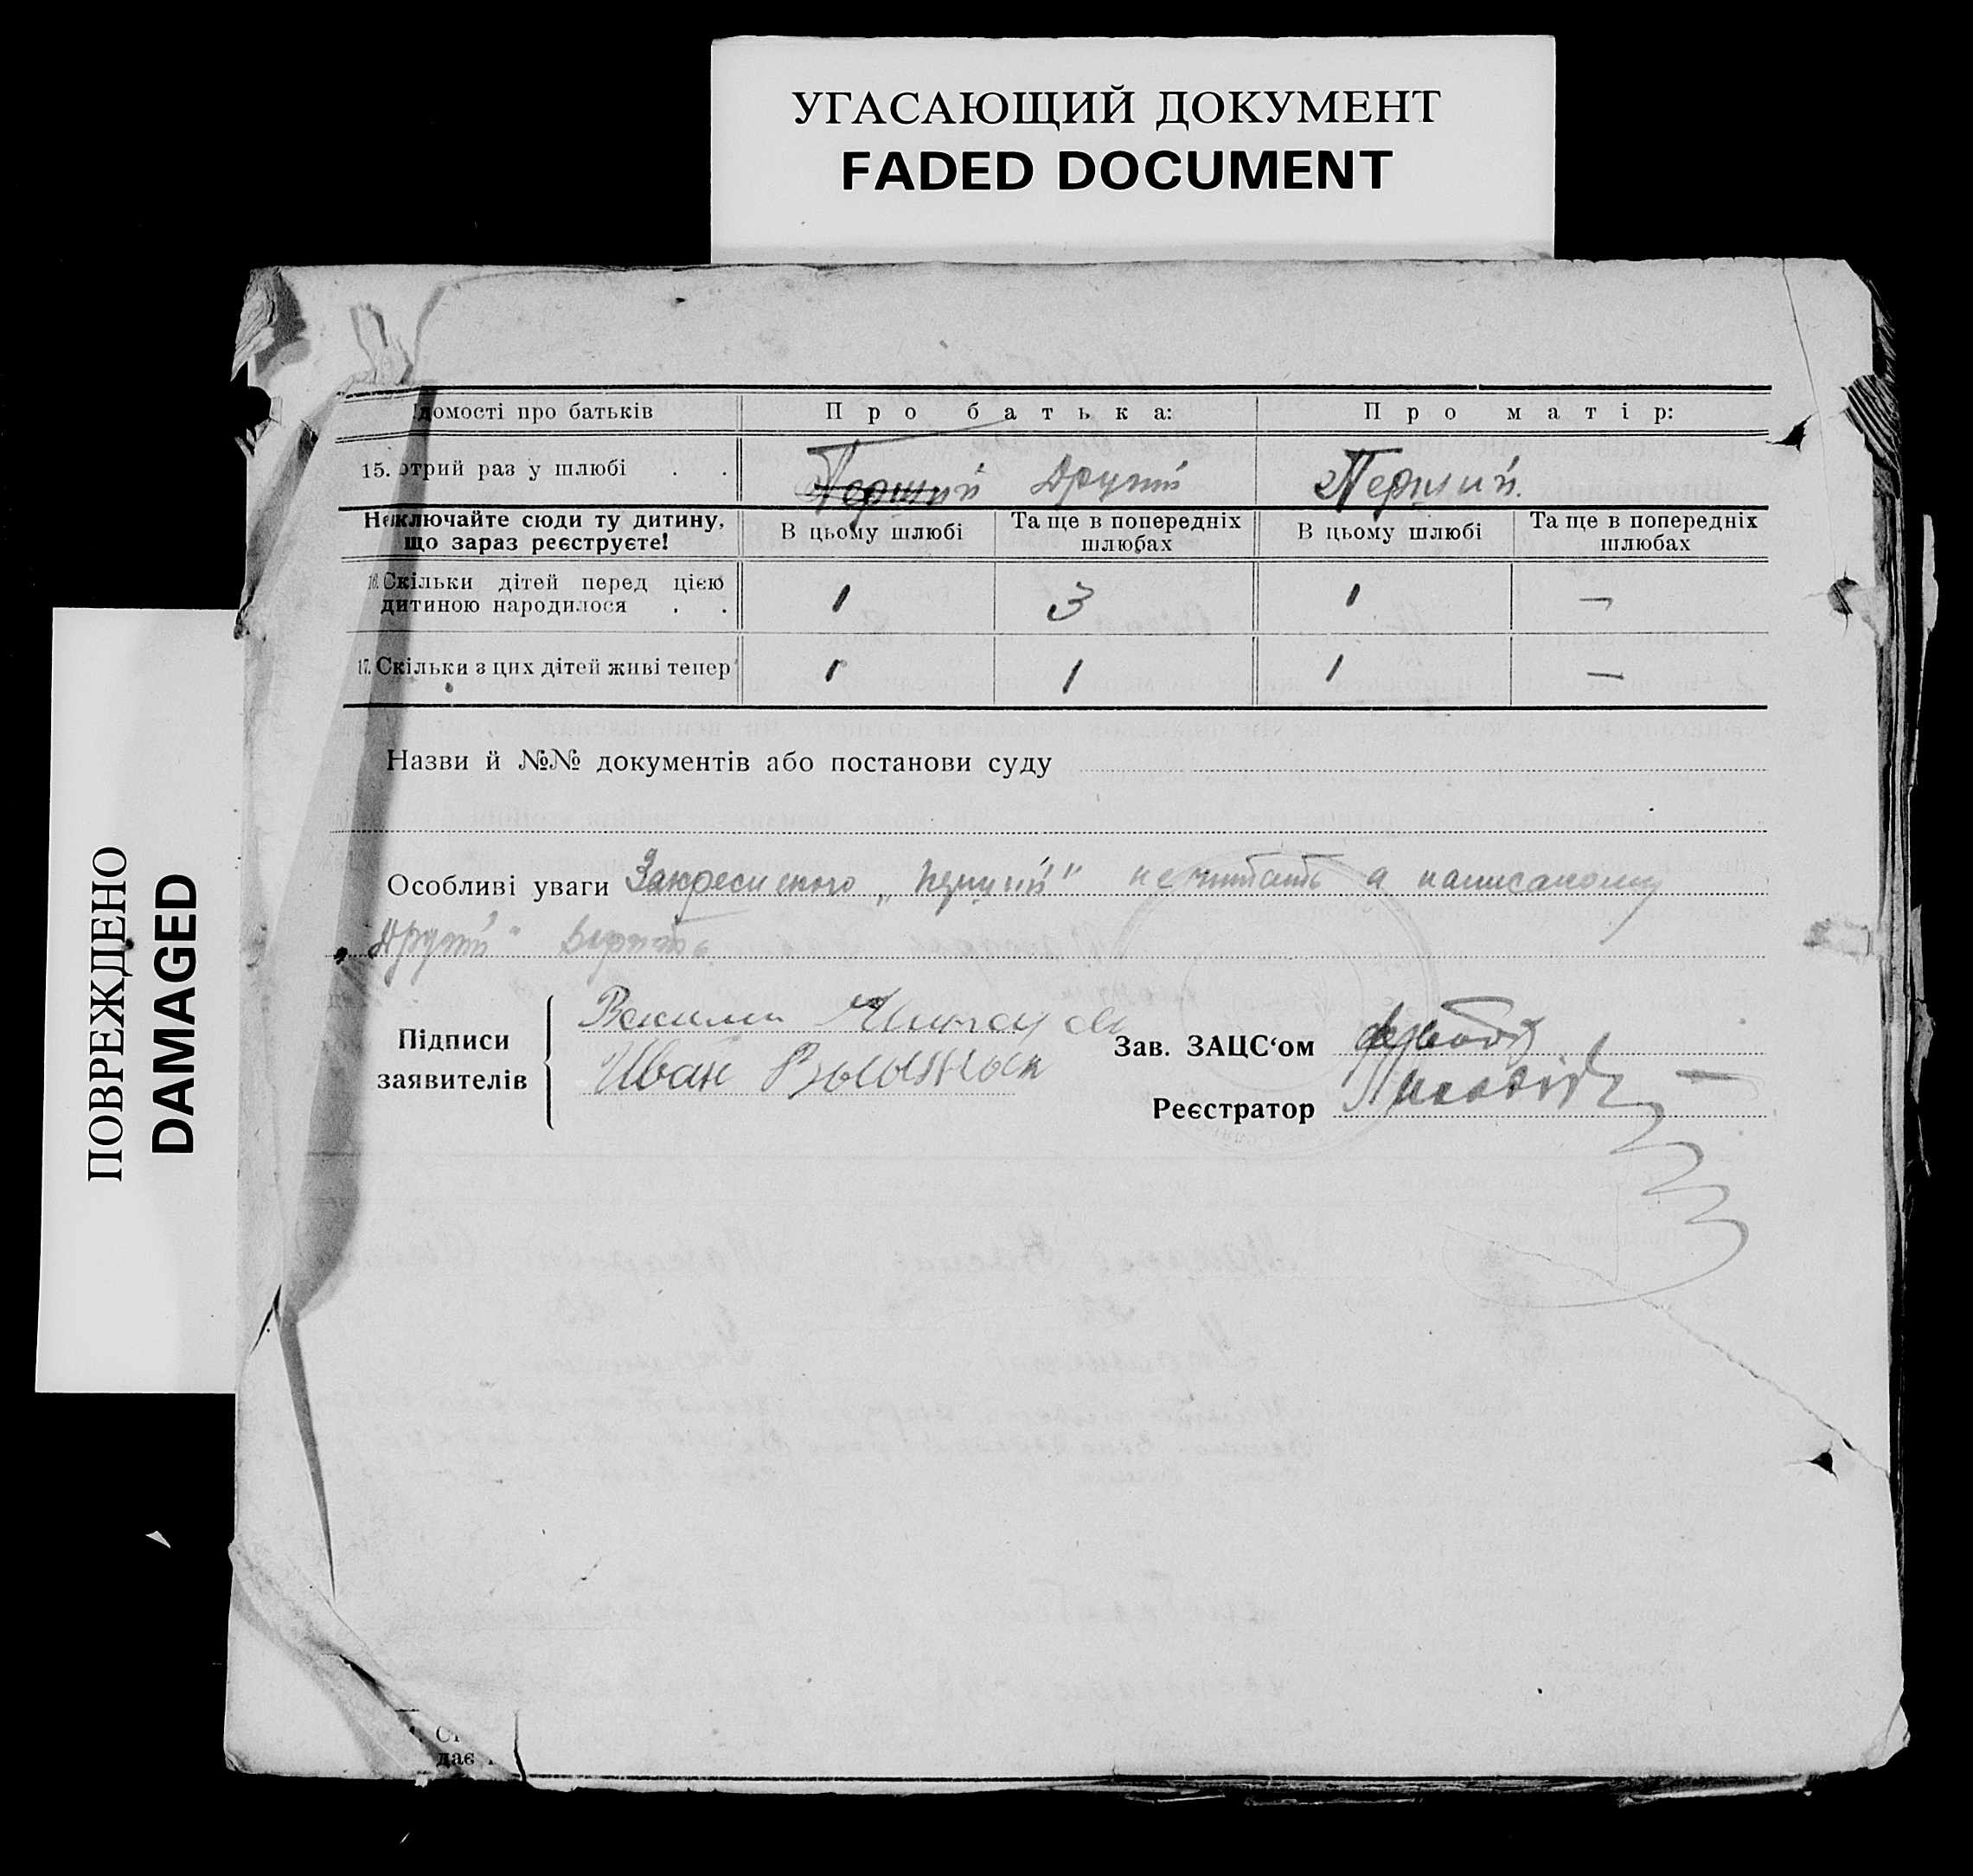 УГАСАЮЩИЙ ДОКУМЕНТ
FADED DOCUMENT
ПОВРЕЖДЕНО
DAMAGED
домості про батьків Про батька: Про матір:
15. отрий раз у шлюбі . . Перший Другий Перший.
Не включайте сюди ту дитину, що зараз реєструєте! В цьому шлюбі Та ще в попередніх шлюбах В цьому шлюбі Та ще в попередніх шлюбах
16. Скільки дітей перед цією дитиною народилося . . 1 3 1 —
17. Скільки з цих дітей живі тепер 1 1 1 —
Назви й №№ документів або постанови суду
Особливі уваги „ перший" не читать а написаному
„Другий" верить
Підписи заявителів
Иван
Зав. ЗАЦС‘ом
Реєстратор
дає